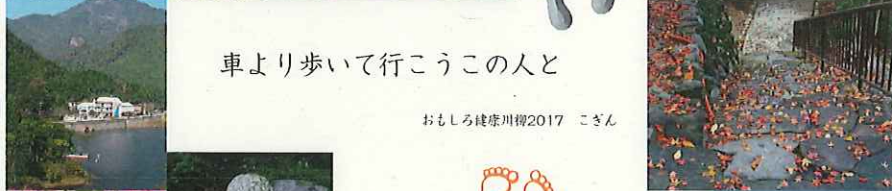 車より歩いて行こうこの人と
おもしろ健康川柳2017　こぎん